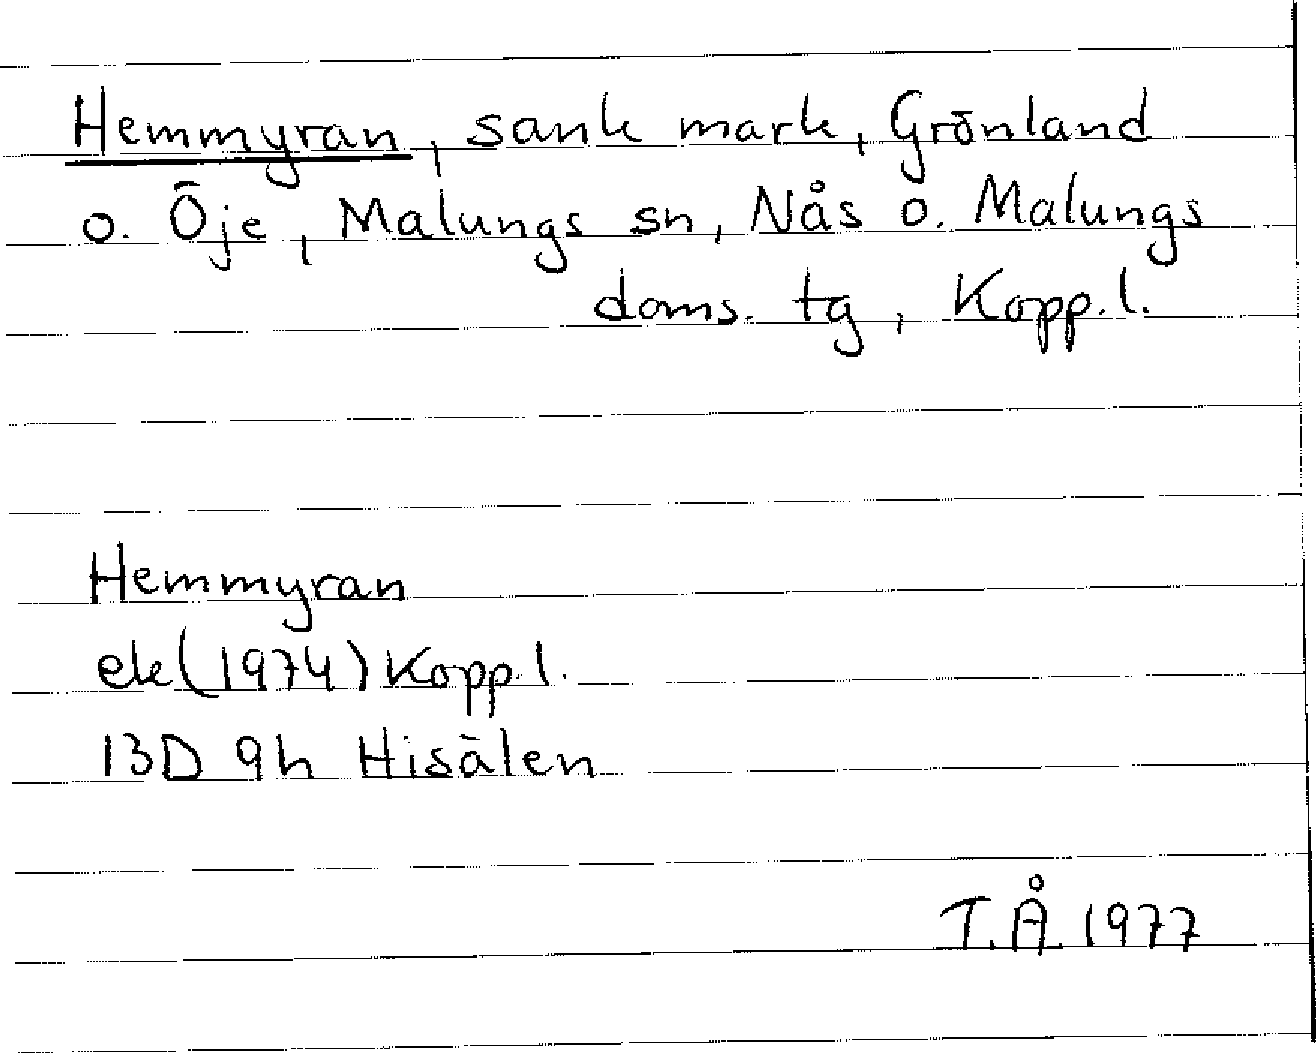 Hemmyran, sank mark, Grönland
o. Öje, Malungs sn, Nås o. Malungs
doms. tg, Kopp. l.
Hemmyran
ek (1974) Kopp. l.
13D 9h Hisälen
T.Å. 1977